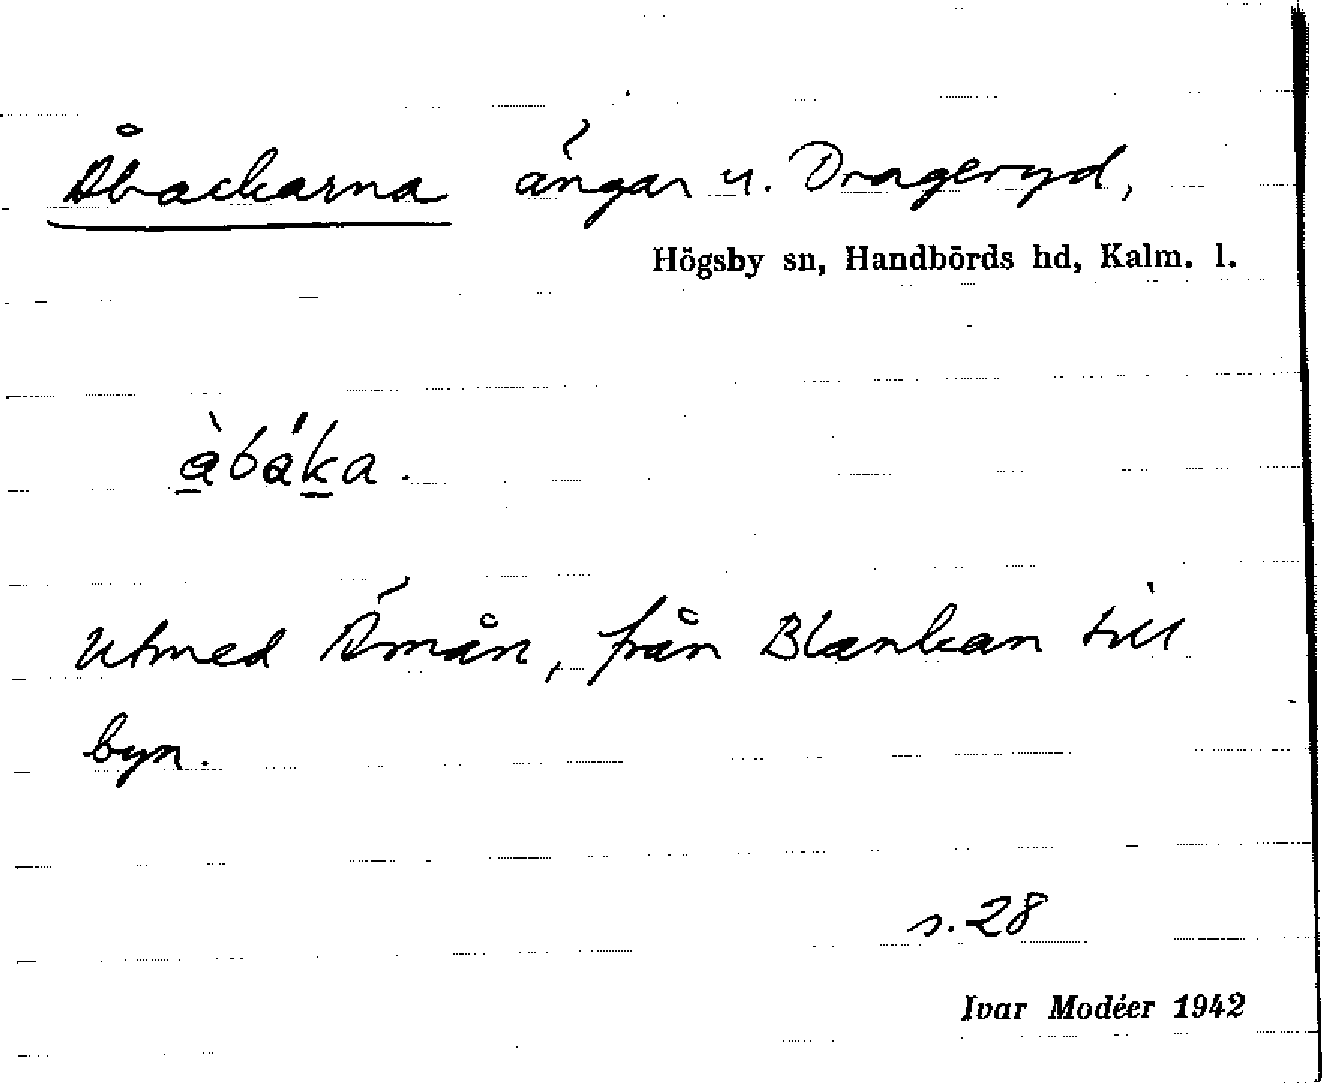 Åbackarna ängar u. Drageryd,
Högsby sn, Handbörds hd, Kalm. l.
àbáka.
Utmed Ämån, från Blankan till
byn.
s. 28
Ivar Modéer 1942